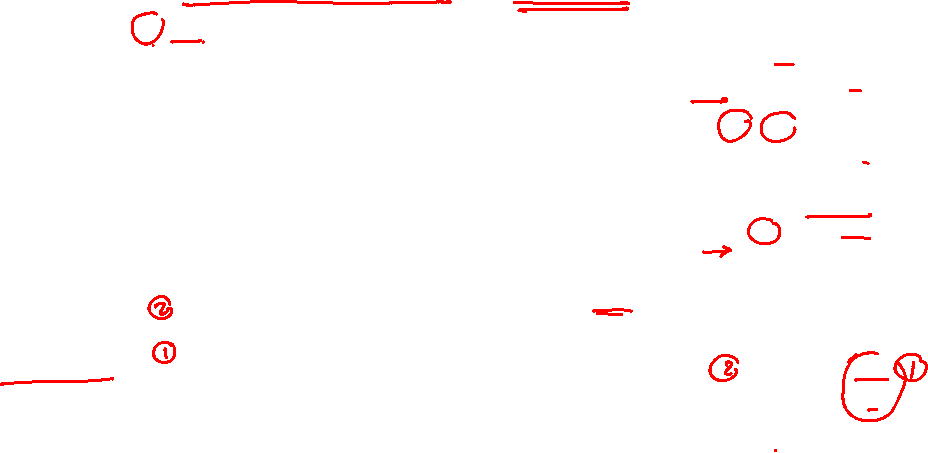 ②
①
② ①